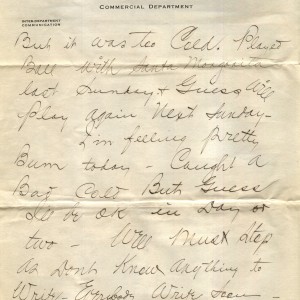 COMMERCIAL DEPARTMENT
INTER-DEPARTMENT
COMMUNICATION
But it was too Cold. Played
Ball with Santa Margarita
last Sunday & Guess We'll
Play again Next Sunday -
I'm feeling pretty
Bum today - Caught a
Bad Cold But Guess
I'll be OK in Day or
two - Well Must Stop
as Dont Know anything to
Write - Everybody Write Soon -